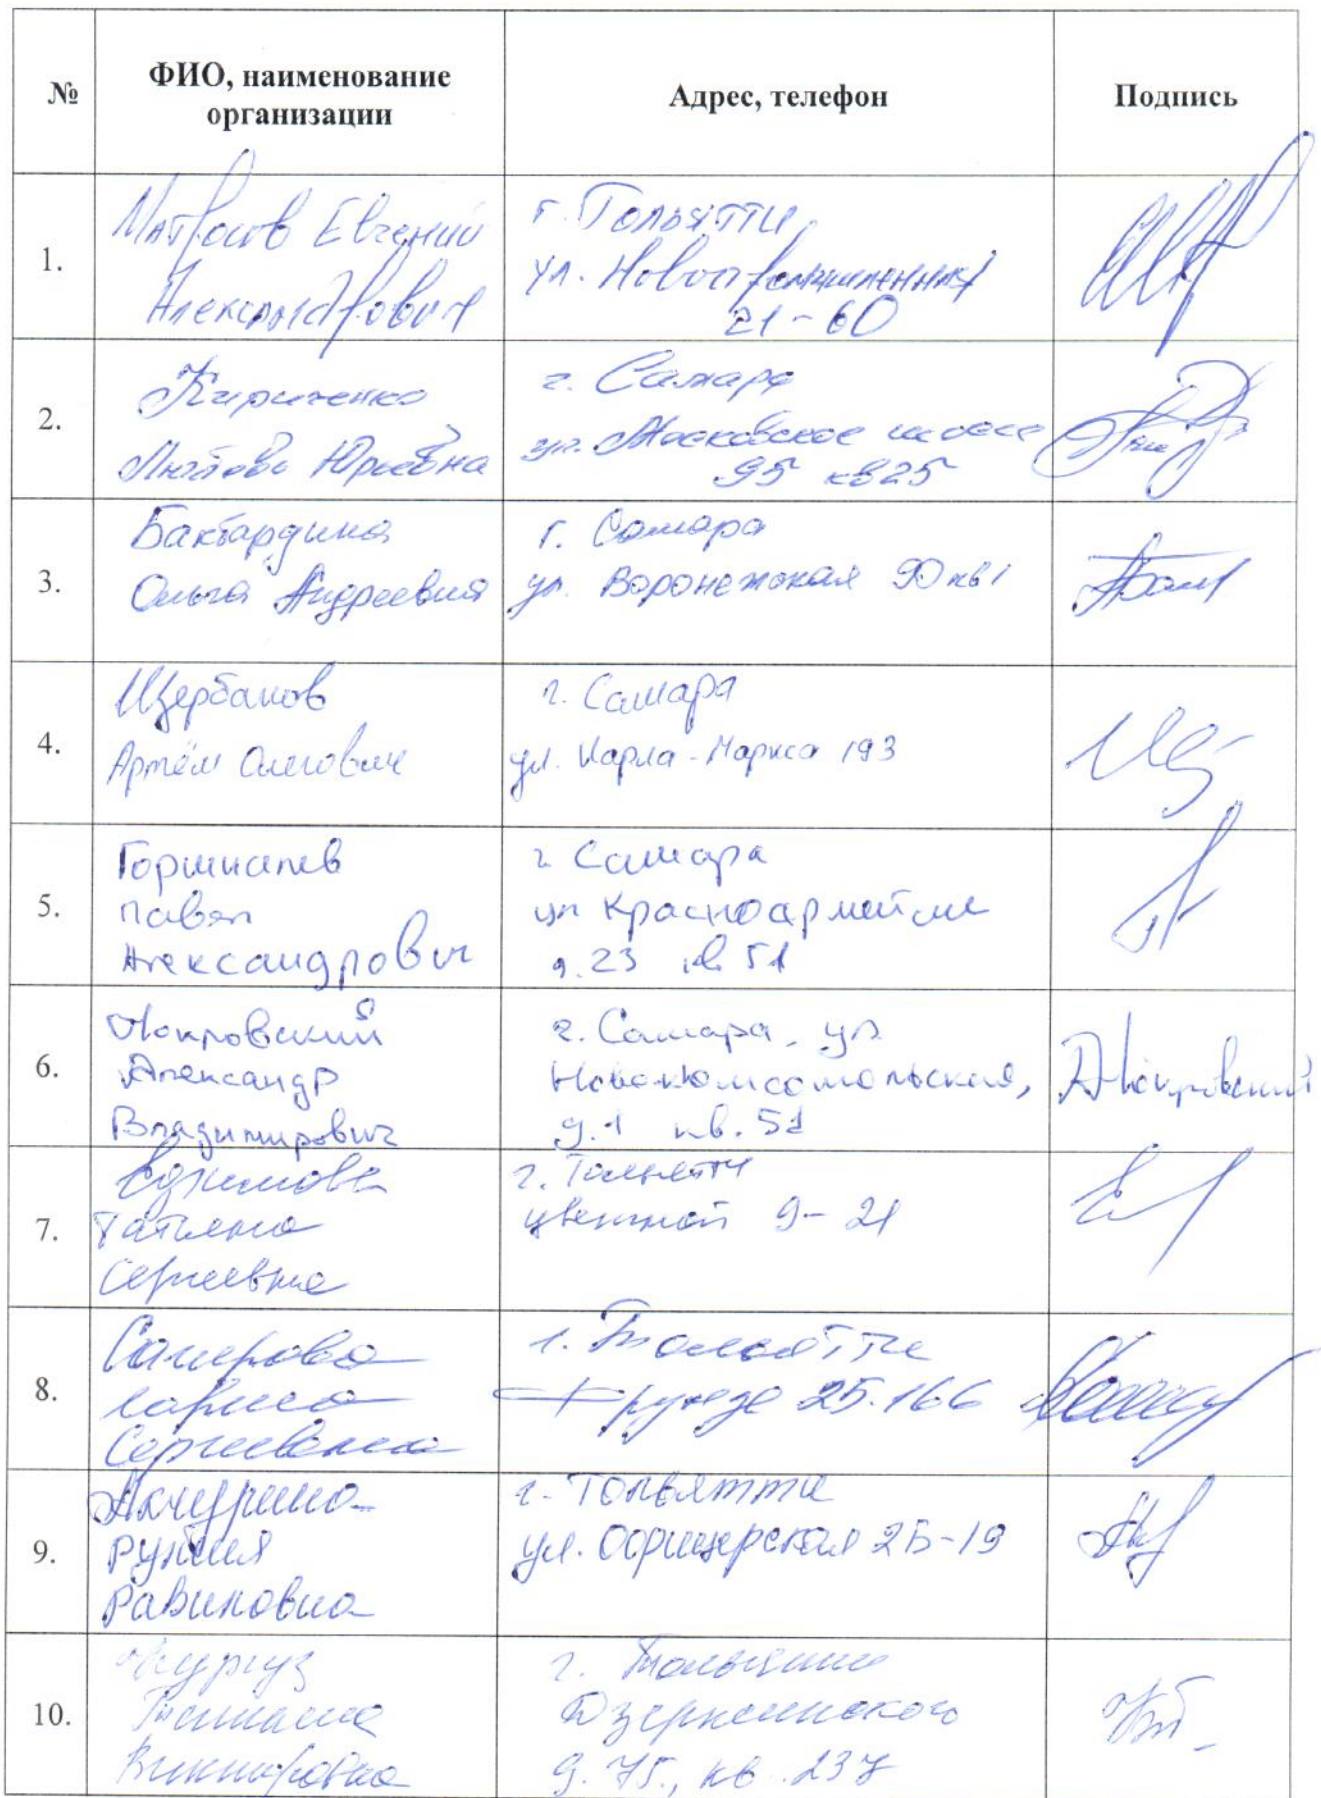 №
ФИО, наименование
организации
Адрес, телефон
Подпись
1.
Матросов Евгений
Александрович
г. Тольятти
ул. Новопромышленная
21-60
2.
Кириченко
Юрьевна
г. Самара
ул. Московское шоссе
95 кв25
3.
Бактардина
Ольга Андреевна
г. Самара
ул. Воронежская 90 кв1
4.
Щербаков
Артём Олегович
г. Самара
ул. Карла-Маркса 193
5.
Павел
Александрович
г Самара
ул Красноармейская
д.23 кв 51
6.
Покровский
Александр
Владимирович
г. Самара, ул
Ново-Комсомольская,
д.1 кв. 51
Покровский
7.
Татьяна
Сергеевна
г. Тольятти
9-21
8.
Лариса
Сергеевна
г. Тольятти
Фрунзе 25.166
9.
Акчурина
Равиловна
г. Тольятти
ул. Офицерская 2Б-19
10.
Татьяна
Викторовна
г. Тольятти
Дзержинского
д. 75, кв. 237